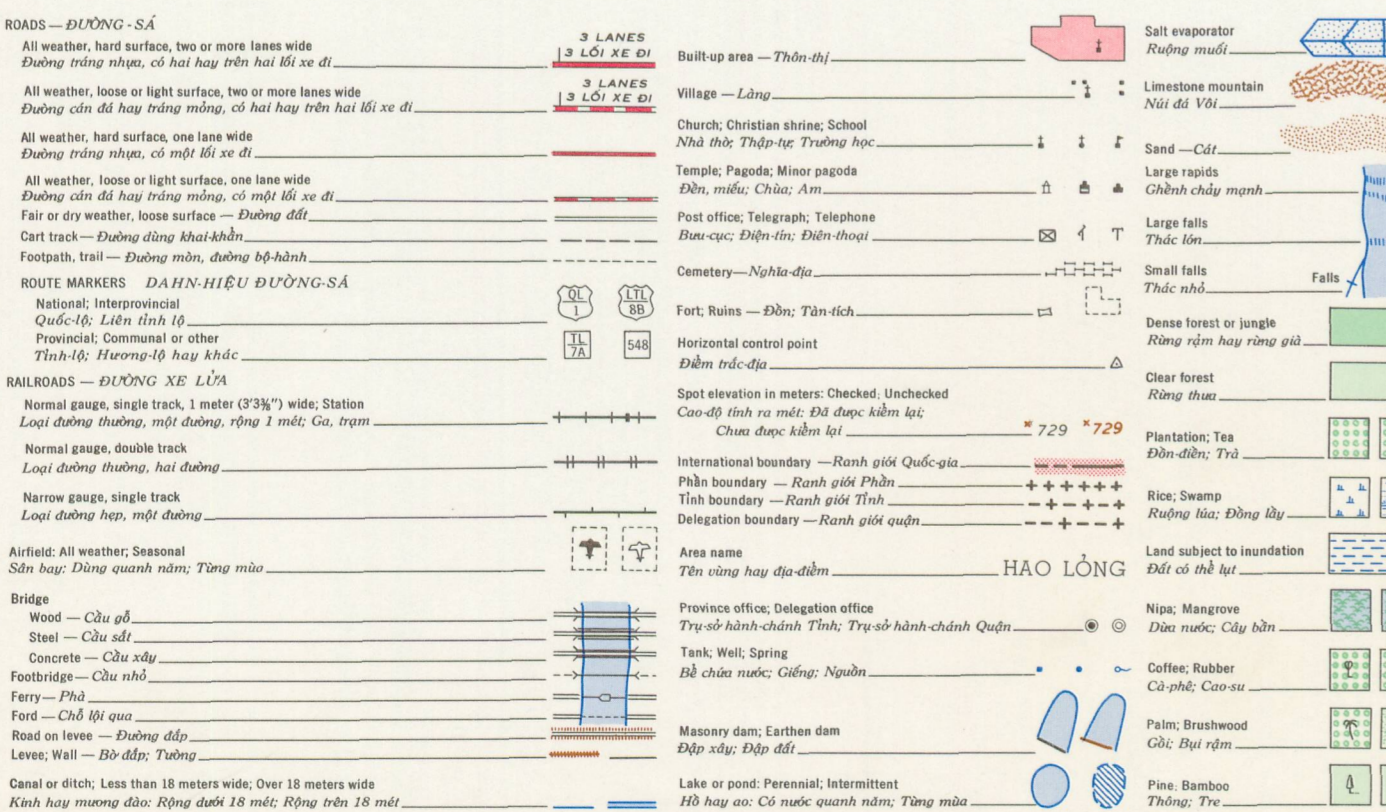 ROADS — ĐƯỜNG - SÁ
All weather, hard surface, two or more lanes wide
Đường tráng nhựa, có hai hay trên hai lối xe đi
3 LANES
3 LỐI XE ĐI
All weather, loose or light surface, two or more lanes wide
Đường cán đá hay tráng mỏng, có hai hay trên hai lối xe đi
3 LANES
3 LỐI XE ĐI
All weather, hard surface, one lane wide
Đường tráng nhựa, có một lối xe đi
All weather, loose or light surface, one lane wide
Đường cán đá hay tráng mỏng, có một lối xe đi
Fair or dry weather, loose surface — Đường đất
Cart track — Đường dùng khai-khẩn
Footpath, trail — Đường mòn, đường bộ-hành
ROUTE MARKERS DAHN-HIỆU ĐƯỜNG-SÁ
National; Interprovincial
Quốc-lộ; Liên tỉnh lộ
QL
1
LTL
8B
Provincial; Communal or other
Tỉnh-lộ; Hương-lộ hay khác
TL
7A
548
RAILROADS — ĐƯỜNG XE LỬA
Normal gauge, single track, 1 meter (3'3⅜") wide; Station
Loại đường thường, một đường, rộng 1 mét; Ga, trạm
Normal gauge, double track
Loại đường thường, hai đường
Narrow gauge, single track
Loại đường hẹp, một đường
Airfield: All weather; Seasonal
Sân bay: Dùng quanh năm; Từng mùa
Bridge
Wood — Cầu gỗ
Steel — Cầu sắt
Concrete — Cầu xây
Footbridge — Cầu nhỏ
Ferry — Phà
Ford — Chỗ lội qua
Road on levee — Đường đắp
Levee; Wall — Bờ đắp; Tường
Canal or ditch; Less than 18 meters wide; Over 18 meters wide
Kinh hay mương đào: Rộng dưới 18 mét; Rộng trên 18 mét
Built-up area — Thôn-thị
Village — Làng
Church; Christian shrine; School
Nhà thờ; Thập-tự; Trường học
Temple; Pagoda; Minor pagoda
Đền, miếu; Chùa; Am
Post office; Telegraph; Telephone
Bưu-cục; Điện-tín; Điên-thoại
Cemetery — Nghĩa-địa
Fort; Ruins — Đồn; Tàn-tích
Horizontal control point
Điểm trắc-địa
Spot elevation in meters: Checked; Unchecked
Cao-độ tính ra mét: Đã được kiểm lại;
Chưa được kiểm lại
729
729
International boundary — Ranh giới Quốc-gia
Phần boundary — Ranh giới Phần
Tỉnh boundary — Ranh giới Tỉnh
Delegation boundary — Ranh giới quận
Area name
Tên vùng hay địa-điểm
HAO LỎNG
Province office; Delegation office
Trụ-sở hành-chánh Tỉnh; Trụ-sở hành-chánh Quận
Tank; Well; Spring
Bể chứa nước; Giếng; Nguồn
Masonry dam; Earthen dam
Đập xây; Đập đất
Lake or pond: Perennial; Intermittent
Hồ hay ao: Có nước quanh năm; Từng mùa
Salt evaporator
Ruộng muối
Limestone mountain
Núi đá Vôi
Sand — Cát
Large rapids
Ghềnh chảy mạnh
Large falls
Thác lớn
Small falls
Thác nhỏ
Falls
Dense forest or jungle
Rừng rậm hay rừng già
Clear forest
Rừng thưa
Plantation; Tea
Đồn-điền; Trà
Rice; Swamp
Ruộng lúa; Đồng lầy
Land subject to inundation
Đất có thể lụt
Nipa; Mangrove
Dừa nước; Cây bần
Coffee; Rubber
Cà-phê; Cao-su
Palm; Brushwood
Gồi; Bụi rậm
Pine; Bamboo
Thông; Tre